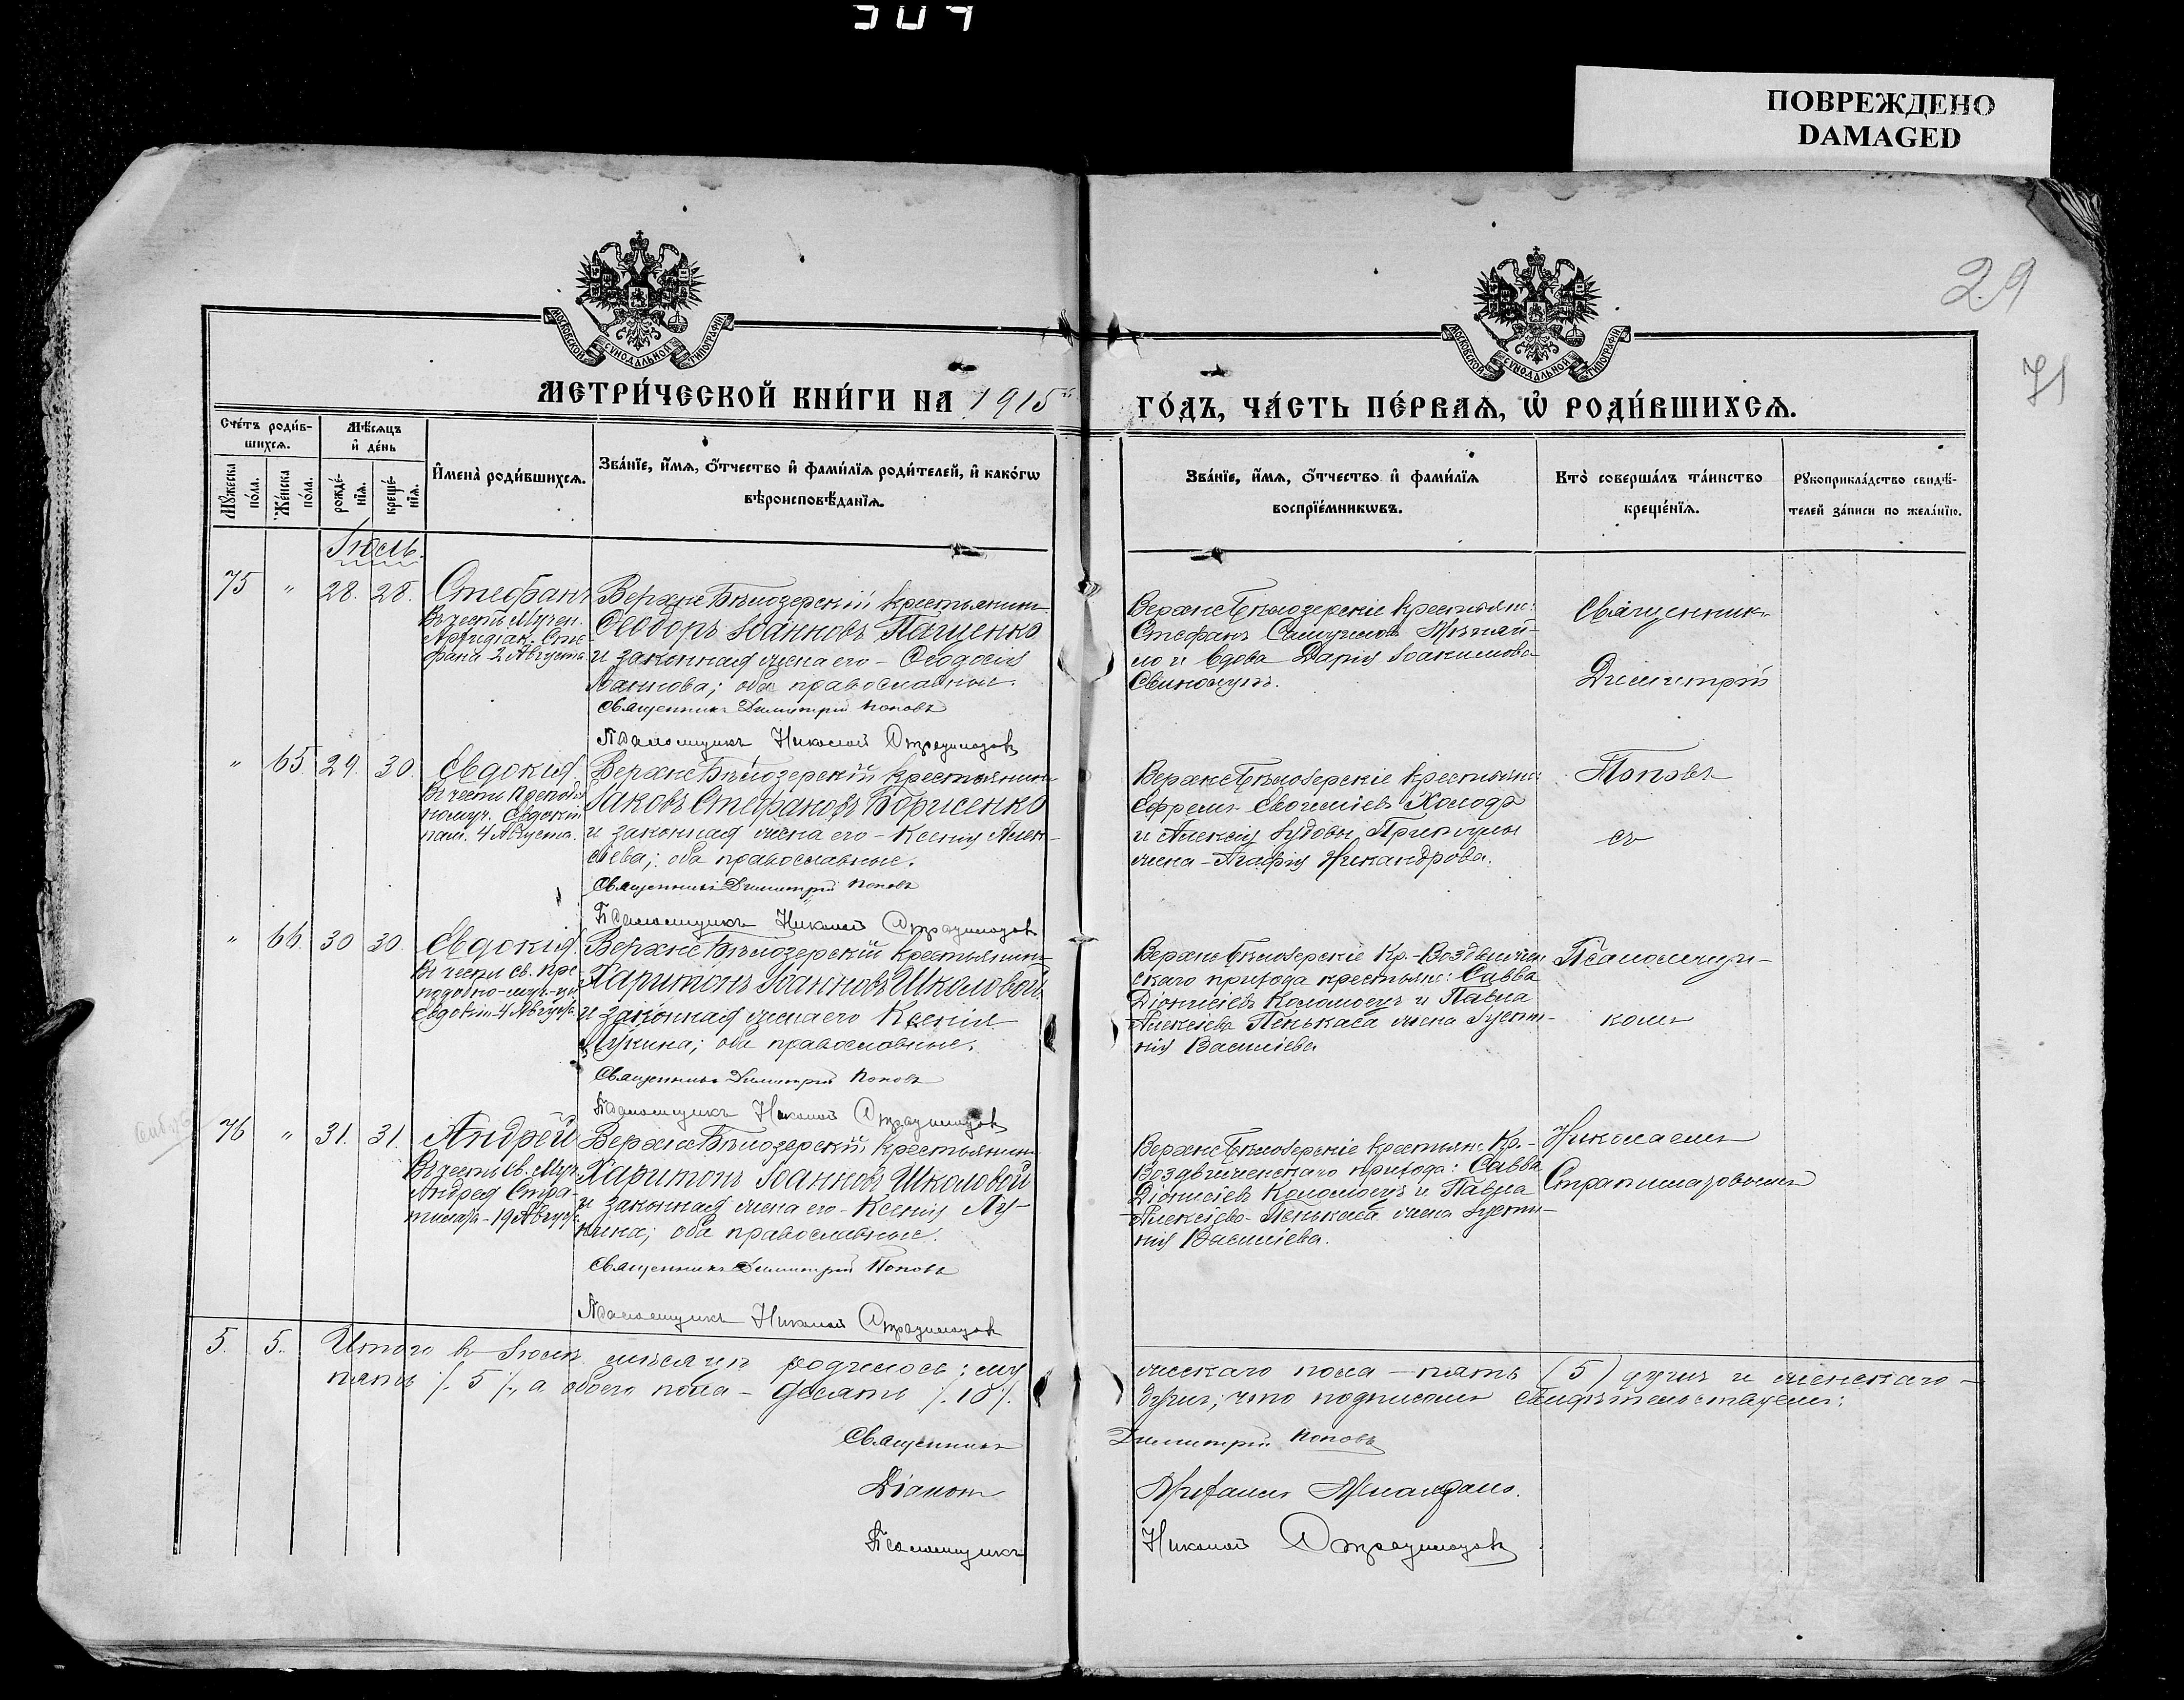 307
ПОВРЕЖДЕНО
DAMAGED
29
71
МОСКОВСКОЙ СѴНОДАЛЬНОЙ ТИПОГРАФІИ
МОСКОВСКОЙ СѴНОДАЛЬНОЙ ТИПОГРАФІИ
МЕТРИ́ЧЕСКОЙ КНИ́ГИ НА 1915й ГО́ДЪ, ЧА́СТЬ ПЕ́РВАѦ, Ѡ҆ РОДИ́ВШИХСѦ.
Сче́тъ роди́в-
шихсѧ.
Мѣ́сѧцъ
и҆ де́нь
Мꙋ́жеска по́ла.
Же́нска по́ла.
рожде́-
нїѧ.
креще́-
нїѧ.
И҆мена̀ роди́вшихсѧ.
Зва́нїе, и҆́мѧ, ѻ҆́тчество и҆ фами́лїѧ роди́телей, и҆ како́гѡ
вѣроисповѣ́данїѧ.
Зва́нїе, и҆́мѧ, ѻ҆́тчество и҆ фами́лїѧ
воспрїе́мникѡвъ.
Кто̀ соверша́лъ та́инство
креще́нїѧ.
Рꙋкоприкла́дство свидѣ́-
телей за́писи по жела́нїю.
Іюль.
75 " 28. 28. Стефанъ
Въ честь Мучен.
Архидіак. Сте-
фана 2 Августа
ВерхнеБѣлозерскій крестьянинъ
Ѳеодоръ Іоанновъ Пащенко
и законная жена его - Ѳеодосія
Іоаннова; оба православные.
Священникъ Димитрій Поповъ
Псаломщикъ Николай Стратилатовъ
ВерхнеБѣлозерскіе крестьяне:
Стефанъ Самуиловъ
и вдова Дарія Іоакимова
Священникъ
Димитрій
" 65. 29. 30. Евдокія.
Въ честь Преподоб
номуч. Евдокіи
пам. 4 Августа.
ВерхнеБѣлозерскій крестьянинъ
Іаковъ Стефановъ Борисенко
и законная жена его - Ксенія Алек-
сіева; оба православные.
Священникъ Димитрій Поповъ
Псаломщикъ Николай Стратилатовъ
ВерхнеБѣлозерскіе крестьяне:
Ефремъ Холодъ
и Алексія
жена - Агафія Никандрова.
Поповъ
съ
" 66. 30 30. Евдокія.
Въ честь св. пре-
подобно-муч-цы
Евдокіи 4 Августа.
ВерхнеБѣлозерскій крестьянинъ
Харитонъ Іоанновъ Школовой
и законная жена его Ксенія
Лукина; оба православные.
Священникъ Димитрій Поповъ
Псаломщикъ Николай Стратилатовъ
ВерхнеБѣлозерскіе Кр.-Воздвижен
скаго прихода крестьяне: Савва
Діонисіевъ Коломоецъ и Павла
Алексіева Пенькаса жена Іусти-
нія Василіева
Псаломщи-
комъ
76 " 31. 31. Андрей
Въ честь Св. Муч.
Андрея Стра-
тилата - 19 Августа
ВерхнеБѣлозерскій крестьянинъ
Харитонъ Іоанновъ Школовой
и законная жена его - Ксенія Лу-
кина; оба православные.
Священникъ Димитрій Поповъ
Псаломщикъ Николай Стратилатовъ
ВерхнеБѣлозерскіе крестьяне Кр.-
Воздвиженскаго прихода: Савва
Діонисіевъ Коломоецъ и Павла
Алексіева - Пенькаса жена Іусти-
нія Василіева.
Николаемъ
Стратилатовымъ
5. 5. Итого въ Іюлѣ мѣсяцѣ родилось: му
жескаго пола - пять (5) душъ и женскаго -
пять /.5/., а обоего пола - десять /.10/.
душъ; что подписомъ свидѣтельствуемъ:
Священникъ Димитрій Поповъ
Діаконъ
Псаломщикъ Николай Стратилатовъ